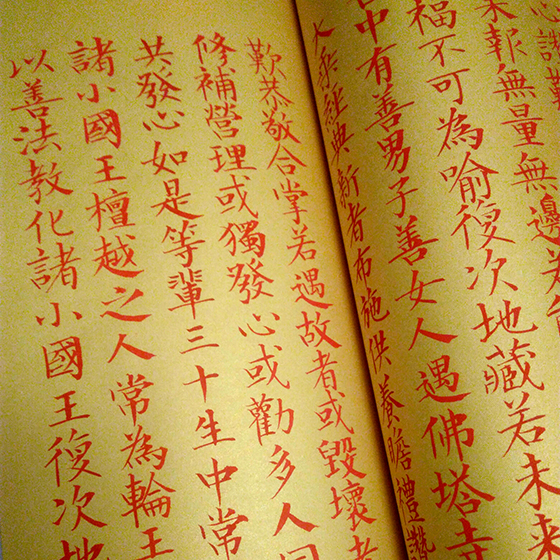 心讚
報無量無邊若
福不可為喻復次地藏若未來
中有善男子善女人遇佛塔寺
大乘經典新者布施供養瞻禮讚
歎恭敬合掌若遇故者或毀壞者
修補營理或獨發心或勸多人同
共發心如是等輩三十生中常
諸小國王檀越之人常為輪王
以善法教化諸小國王復次地